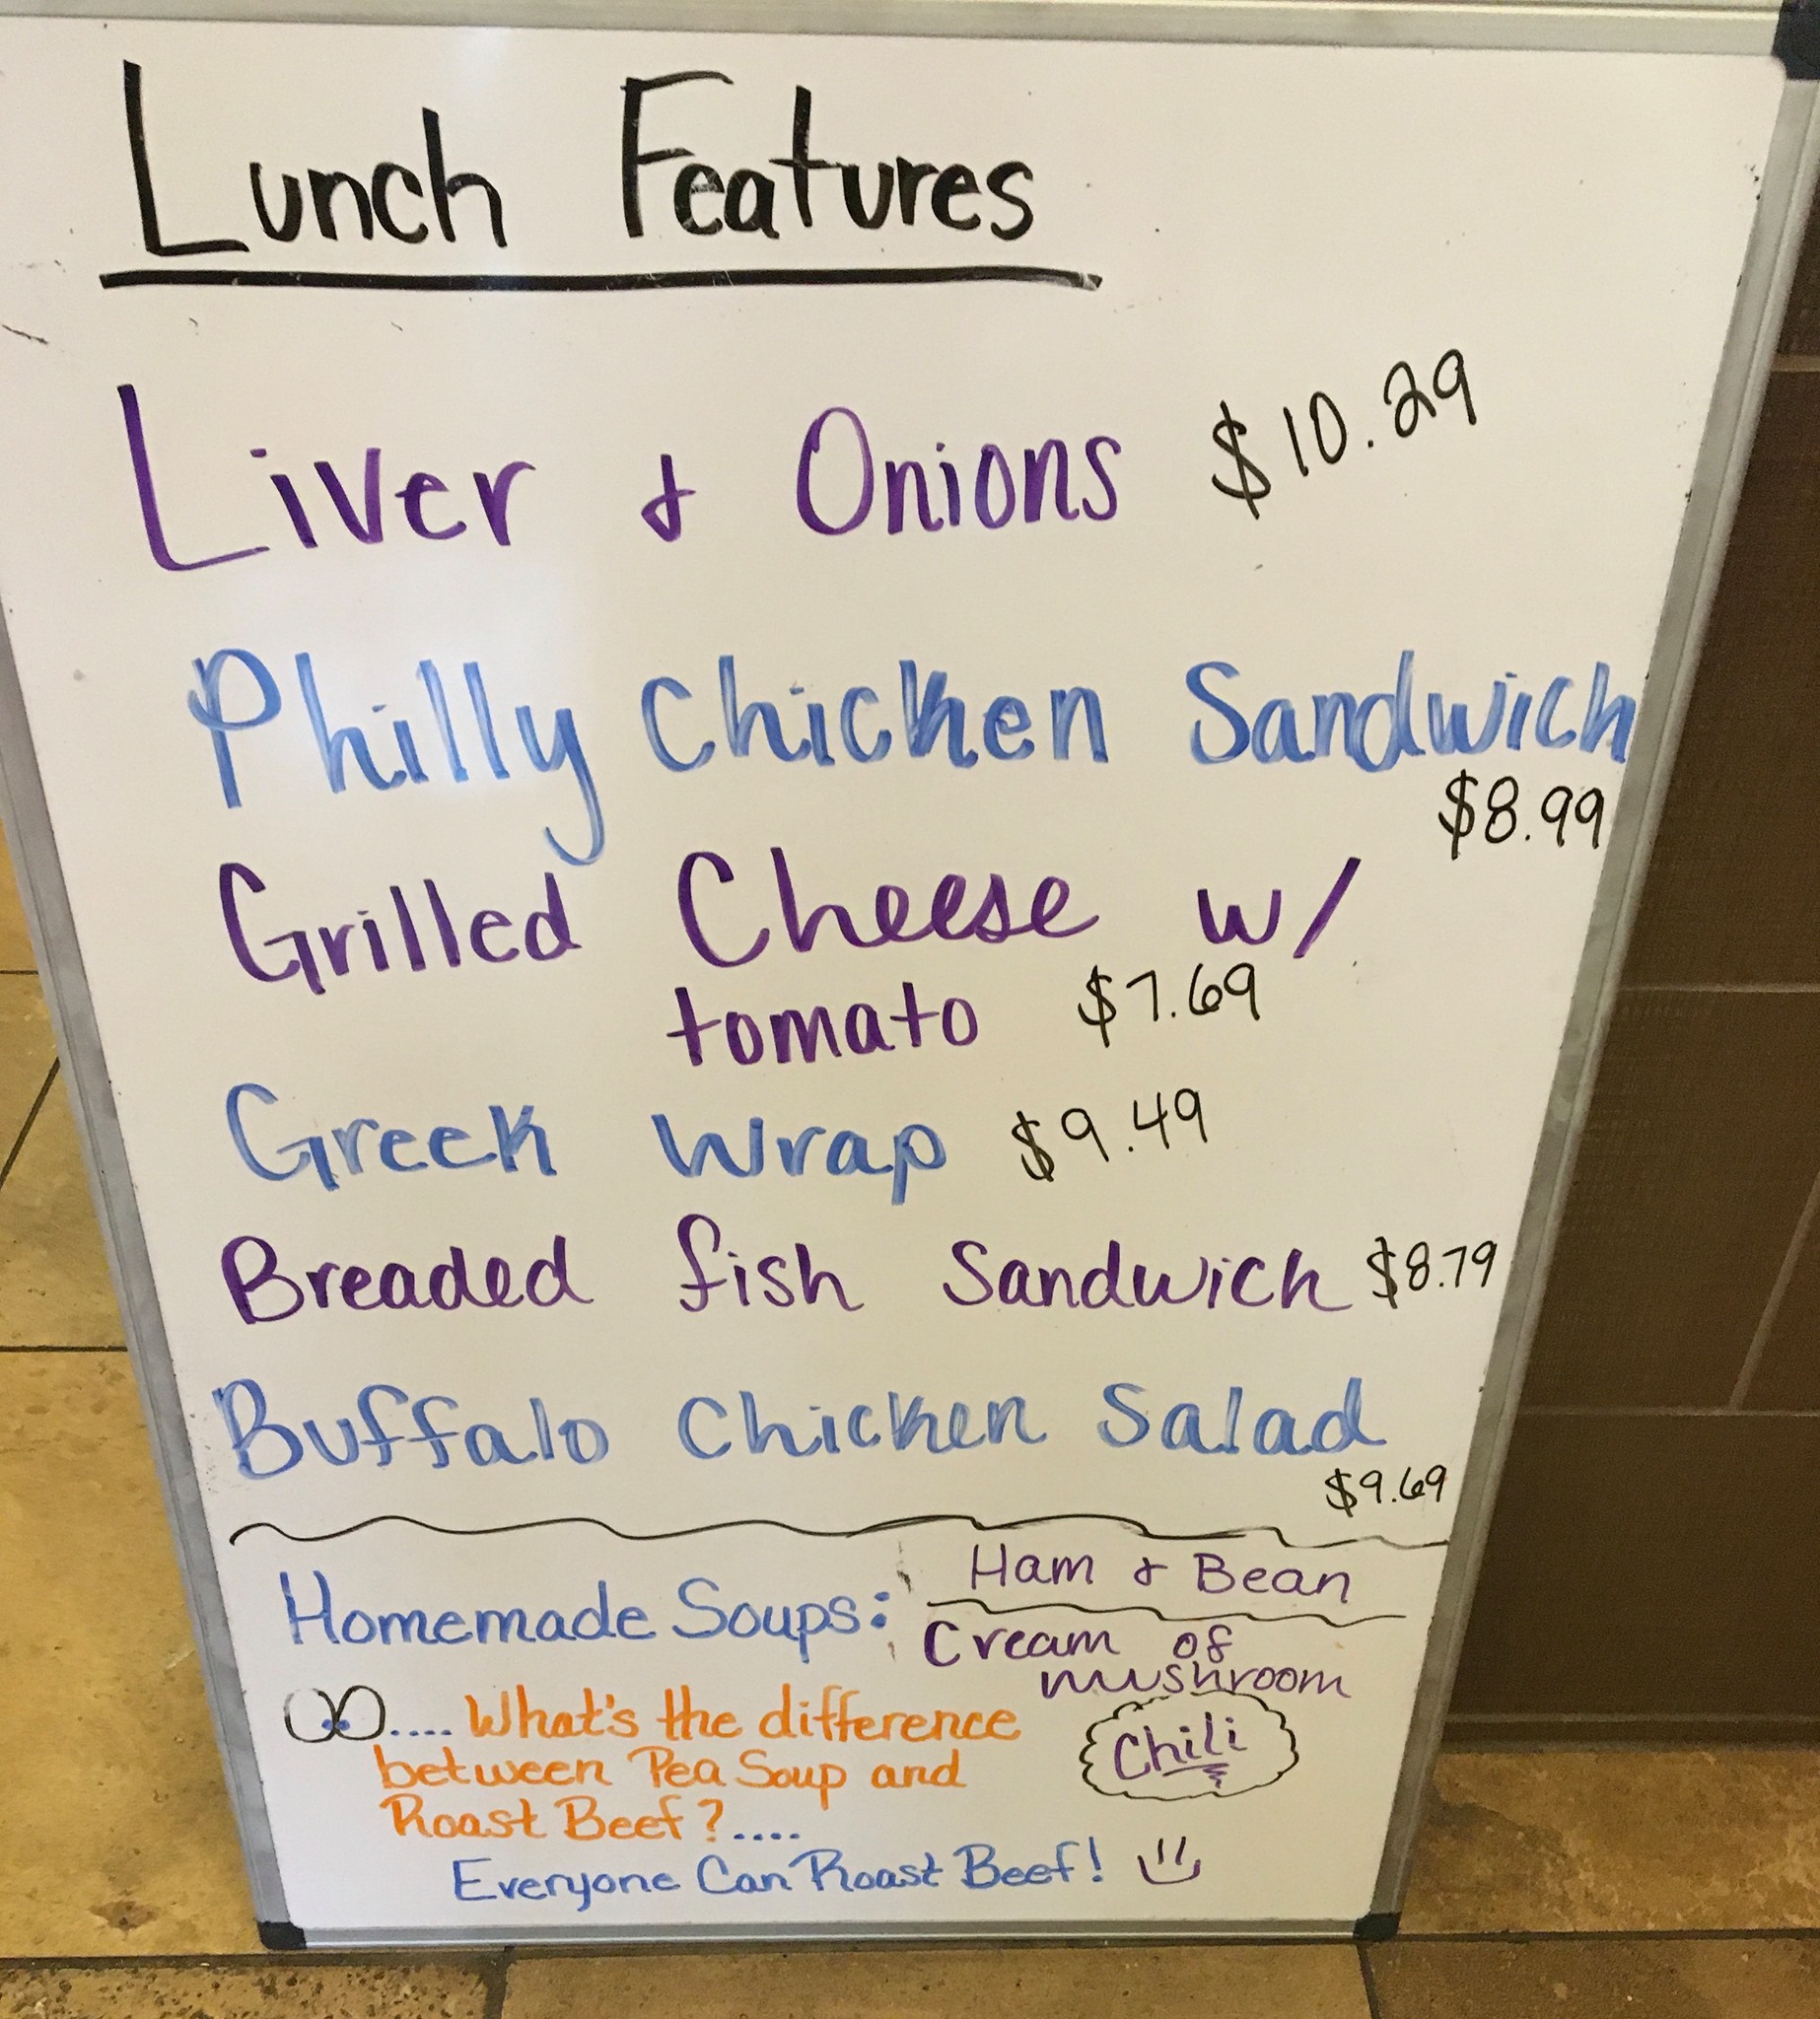 Lunch Features
Liver & Onions $10.29
Philly Chicken Sandwich
$8.99
Grilled Cheese w/
tomato $7.69
Greek Wrap $9.49
Breaded fish Sandwich $8.79
Buffalo Chicken Salad
$9.69
Homemade Soups: Ham & Bean
Cream of
mushroom
Chili
.... What's the difference
between Pea Soup and
Roast Beef?....
Everyone Can Roast Beef!